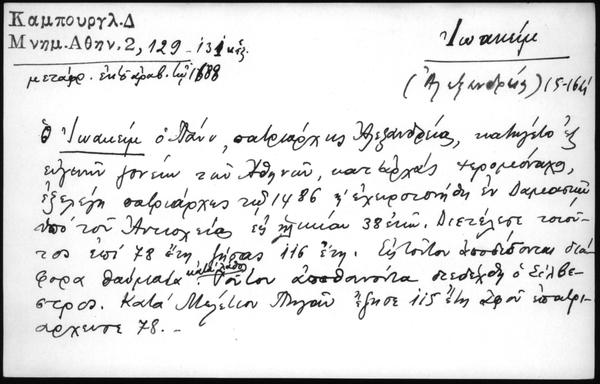 Καμπουργλ. Δ
Μνημ. Αθην. 2, 129-131 κέξ.
μετάφρ. ἐκ παραβ. τῷ 1688
Ἰωακείμ
(Ἀλεξανδρείας) 15-16
Ὁ Ἰωακείμ ὁ Πάνυ, πατριάρχης Ἀλεξανδρείας, κατήγετο ἐξ
εὐγενῶν γονέων τῶν Ἀθηνῶν, κατ' ἀρχάς ἱερομόναχος,
ἐξελέγη πατριάρχης τῷ 1486 κ' ἐχειροτονήθη ἐν Δαμασκῷ
ὑπό τοῦ Ἀντιοχείας ἐν ἡλικίᾳ 38 ἐτῶν. Διετέλεσε τοιοῦ-
τος ἐπί 78 ἔτη ζήσας 116 ἔτη. Εἰς τοῦτον ἀποδίδονται διά-
φορα θαύματα κατά λάθος Τοῦτον ἀποθανόντα διεδέχθη ὁ Σίλβε-
στρος. Κατά Μελέτιον Πηγᾶν ἔζησε 115 ἔτη ἀφοῦ ἐπατρι-
άρχευσε 78.-